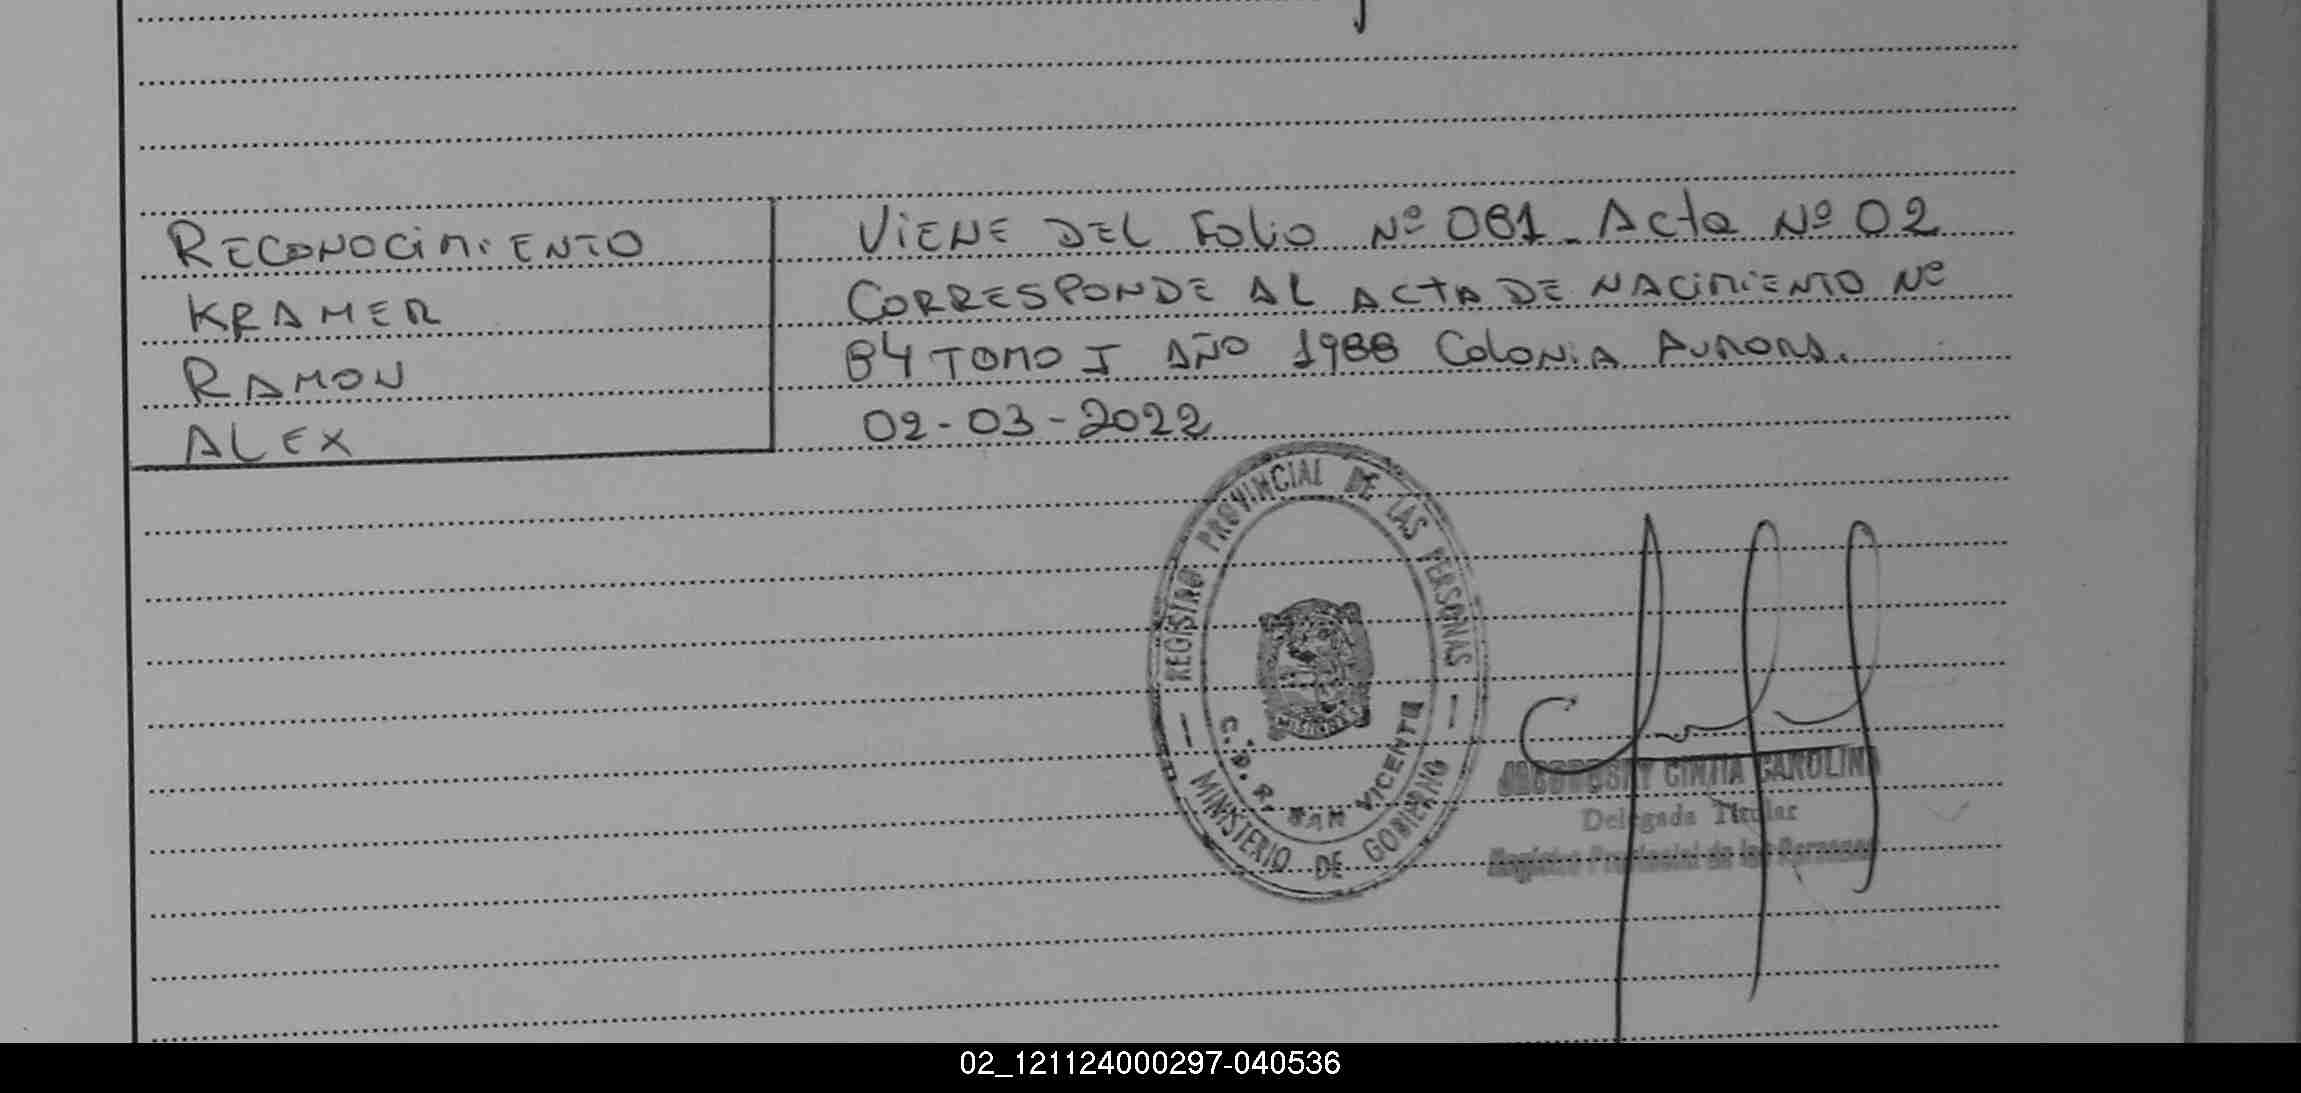 RECONOCIMIENTO
KRAMER
RAMON
ALEX
VIENE DEL Folio Nº 081_ Acta Nº 02
CORRESPONDE AL ACTA DE NACIMIENTO Nº
84 TOMO I AÑO 1988 COLONIA AURORA.
02-03-2022
REGISTRO PROVINCIAL DE LAS PERSONAS
MISIONES
C.D.R. SAN VICENTE
MINISTERIO DE GOBIERNO
CINTIA CAROLINA
Delegada Titular
Registro Provincial de las Personas
02_121124000297-040536